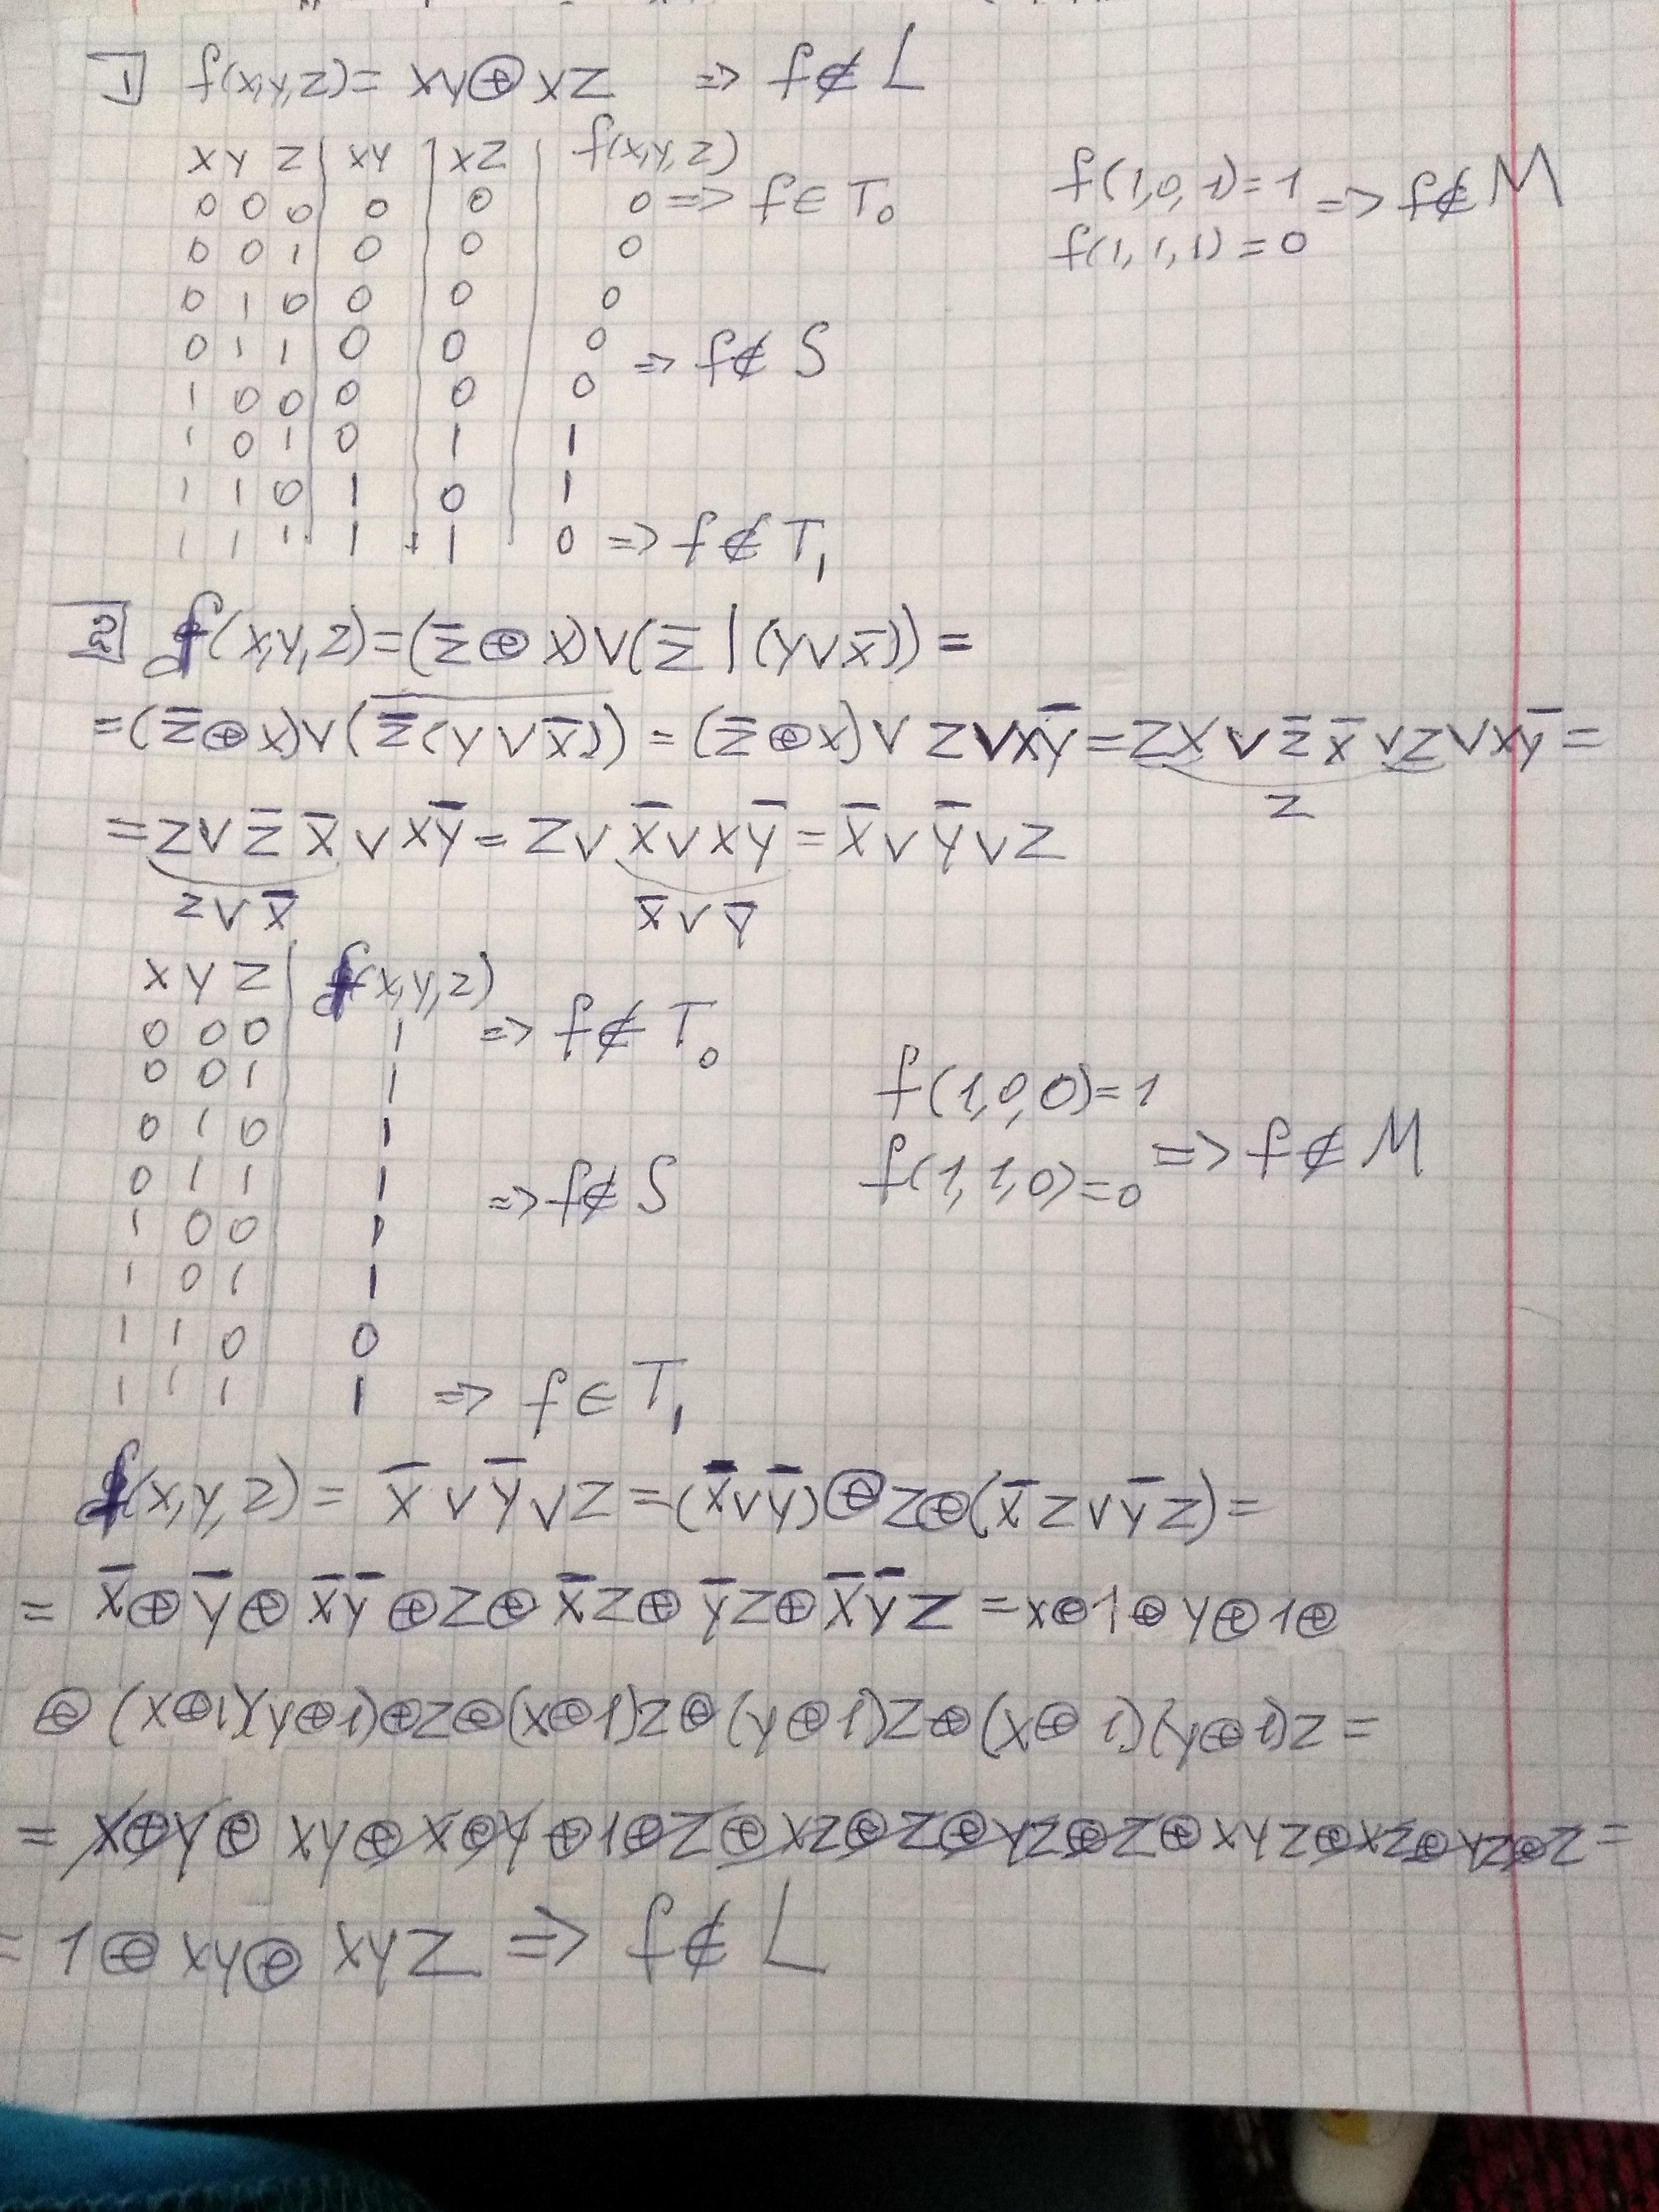 1) f(x,y,z) = xy ⊕ xz => f ∉ L
x y z | xy | xz | f(x,y,z)
0 0 0 | 0 | 0 | 0 => f ∈ T₀
f(1,0,1) = 1
f(1,1,1) = 0 => f ∉ M
0 0 1 | 0 | 0 | 0
0 1 0 | 0 | 0 | 0
0 1 1 | 0 | 0 | 0
=> f ∉ S
1 0 0 | 0 | 0 | 0
1 0 1 | 0 | 1 | 1
1 1 0 | 1 | 0 | 1
1 1 1 | 1 | 1 | 0 => f ∉ T₁
2) f(x,y,z) = (z̅ ⊕ x) ∨ (z̅ | (y ∨ x̅)) =
= (z̅ ⊕ x) ∨ (\overline{z̅ (y ∨ x̅)}) = (z̅ ⊕ x) ∨ z ∨ xy̅ = zx ∨ z̅ x̅ ∨ z ∨ xy̅ =
z
= z ∨ z̅ x̅ ∨ xy̅ = z ∨ x̅ ∨ xy̅ = x̅ ∨ y̅ ∨ z
z ∨ x̅ x̅ ∨ y̅
x y z | f(x,y,z)
0 0 0 | 1 => f ∉ T₀
0 0 1 | 1
f(1,0,0) = 1
f(1,1,0) = 0 => f ∉ M
0 1 0 | 1
0 1 1 | 1
=> f ∉ S
1 0 0 | 1
1 0 1 | 1
1 1 0 | 0
1 1 1 | 1 => f ∈ T₁
f(x,y,z) = x̅ ∨ y̅ ∨ z = (x̅ ∨ y̅) ⊕ z ⊕ (x̅ z ∨ y̅ z) =
= x̅ ⊕ y̅ ⊕ x̅y̅ ⊕ z ⊕ x̅z ⊕ y̅z ⊕ x̅y̅z = x ⊕ 1 ⊕ y ⊕ 1 ⊕
⊕ (x ⊕ 1)(y ⊕ 1) ⊕ z ⊕ (x ⊕ 1)z ⊕ (y ⊕ 1)z ⊕ (x ⊕ 1)(y ⊕ 1)z =
= x ⊕ y ⊕ xy ⊕ x ⊕ y ⊕ 1 ⊕ z ⊕ xz ⊕ z ⊕ yz ⊕ z ⊕ xyz ⊕ xz ⊕ yz ⊕ z =
= 1 ⊕ xy ⊕ xyz => f ∉ L